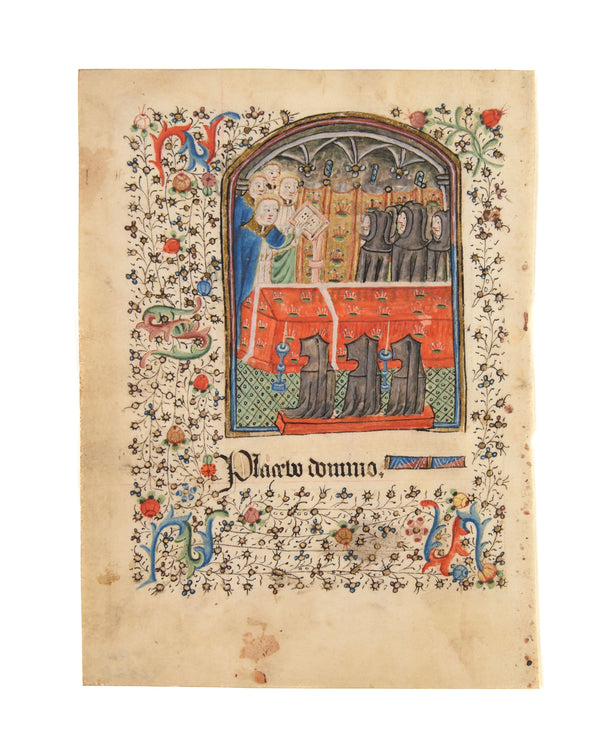 Placebo domino.